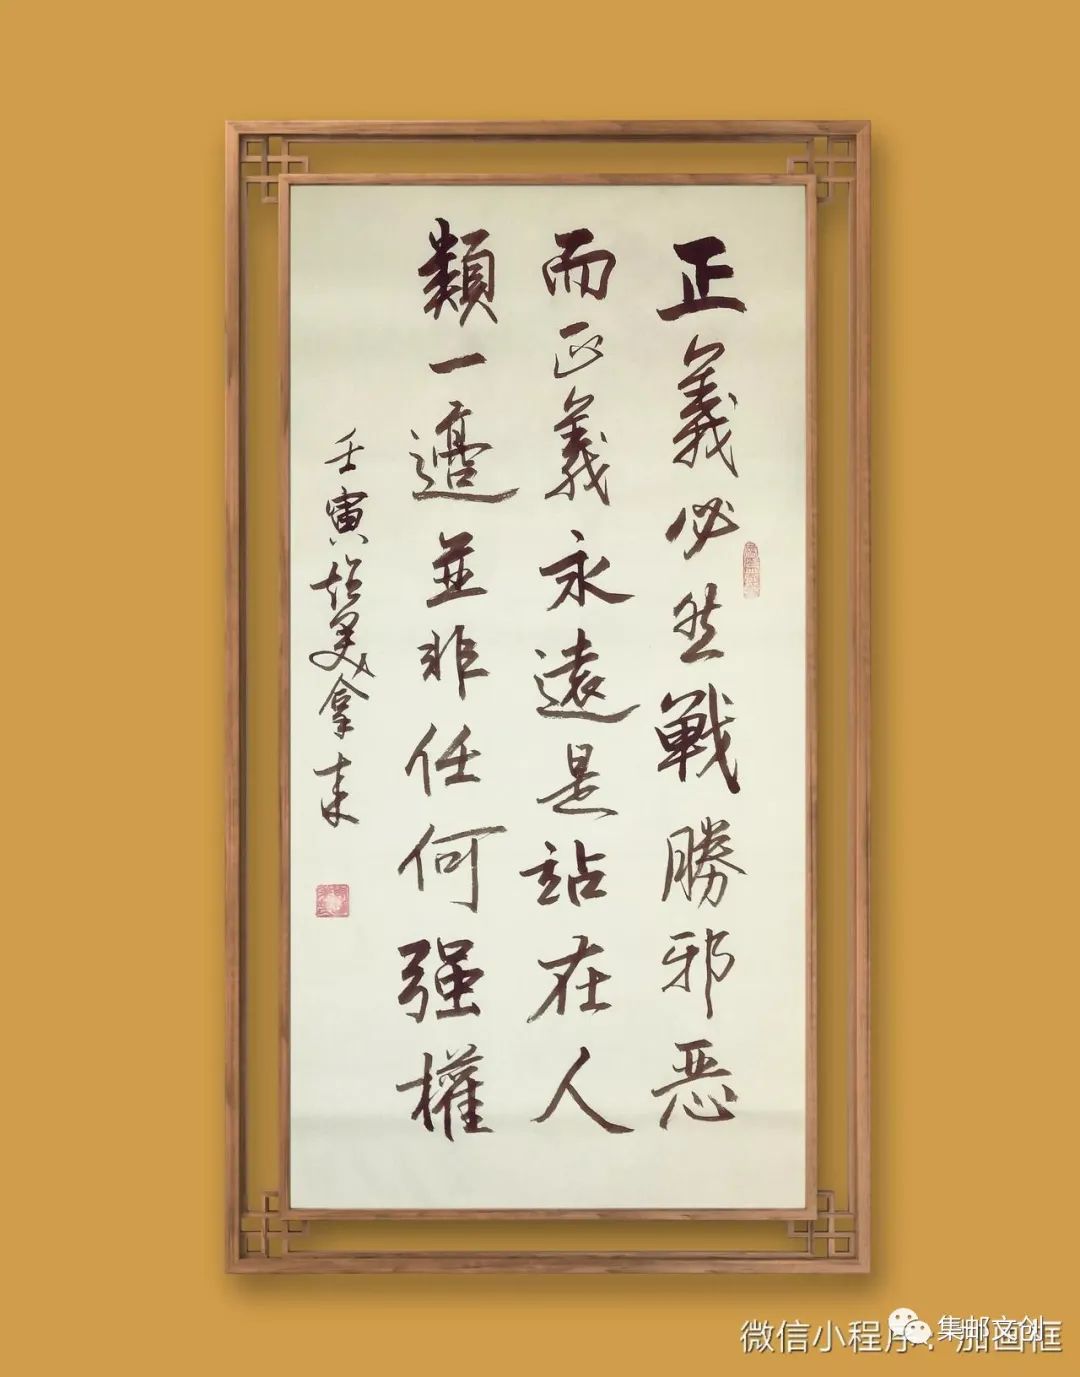 正義必然戰勝邪恶
而正義永遠是站在人
類一邊並非任何强權
壬寅
拿来
微信小程序：加画框
集邮文创